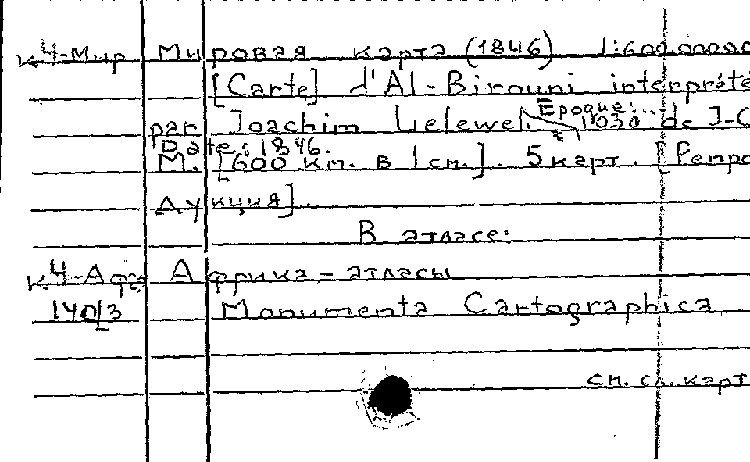 К4-Мир Мировая карта (1846) 1:60000000
[Carte] d'Al-Birouni interprété
Epoque:...
par Joachim Lelewel. 1030 de J-C
Date: 1846.
М. [600 км. в 1 см.]. 5 карт. [Репро
дукция].
В атласе:
К4-Афр Африка - атласы
140/3 Monumenta Cartographica
см. сл. карт